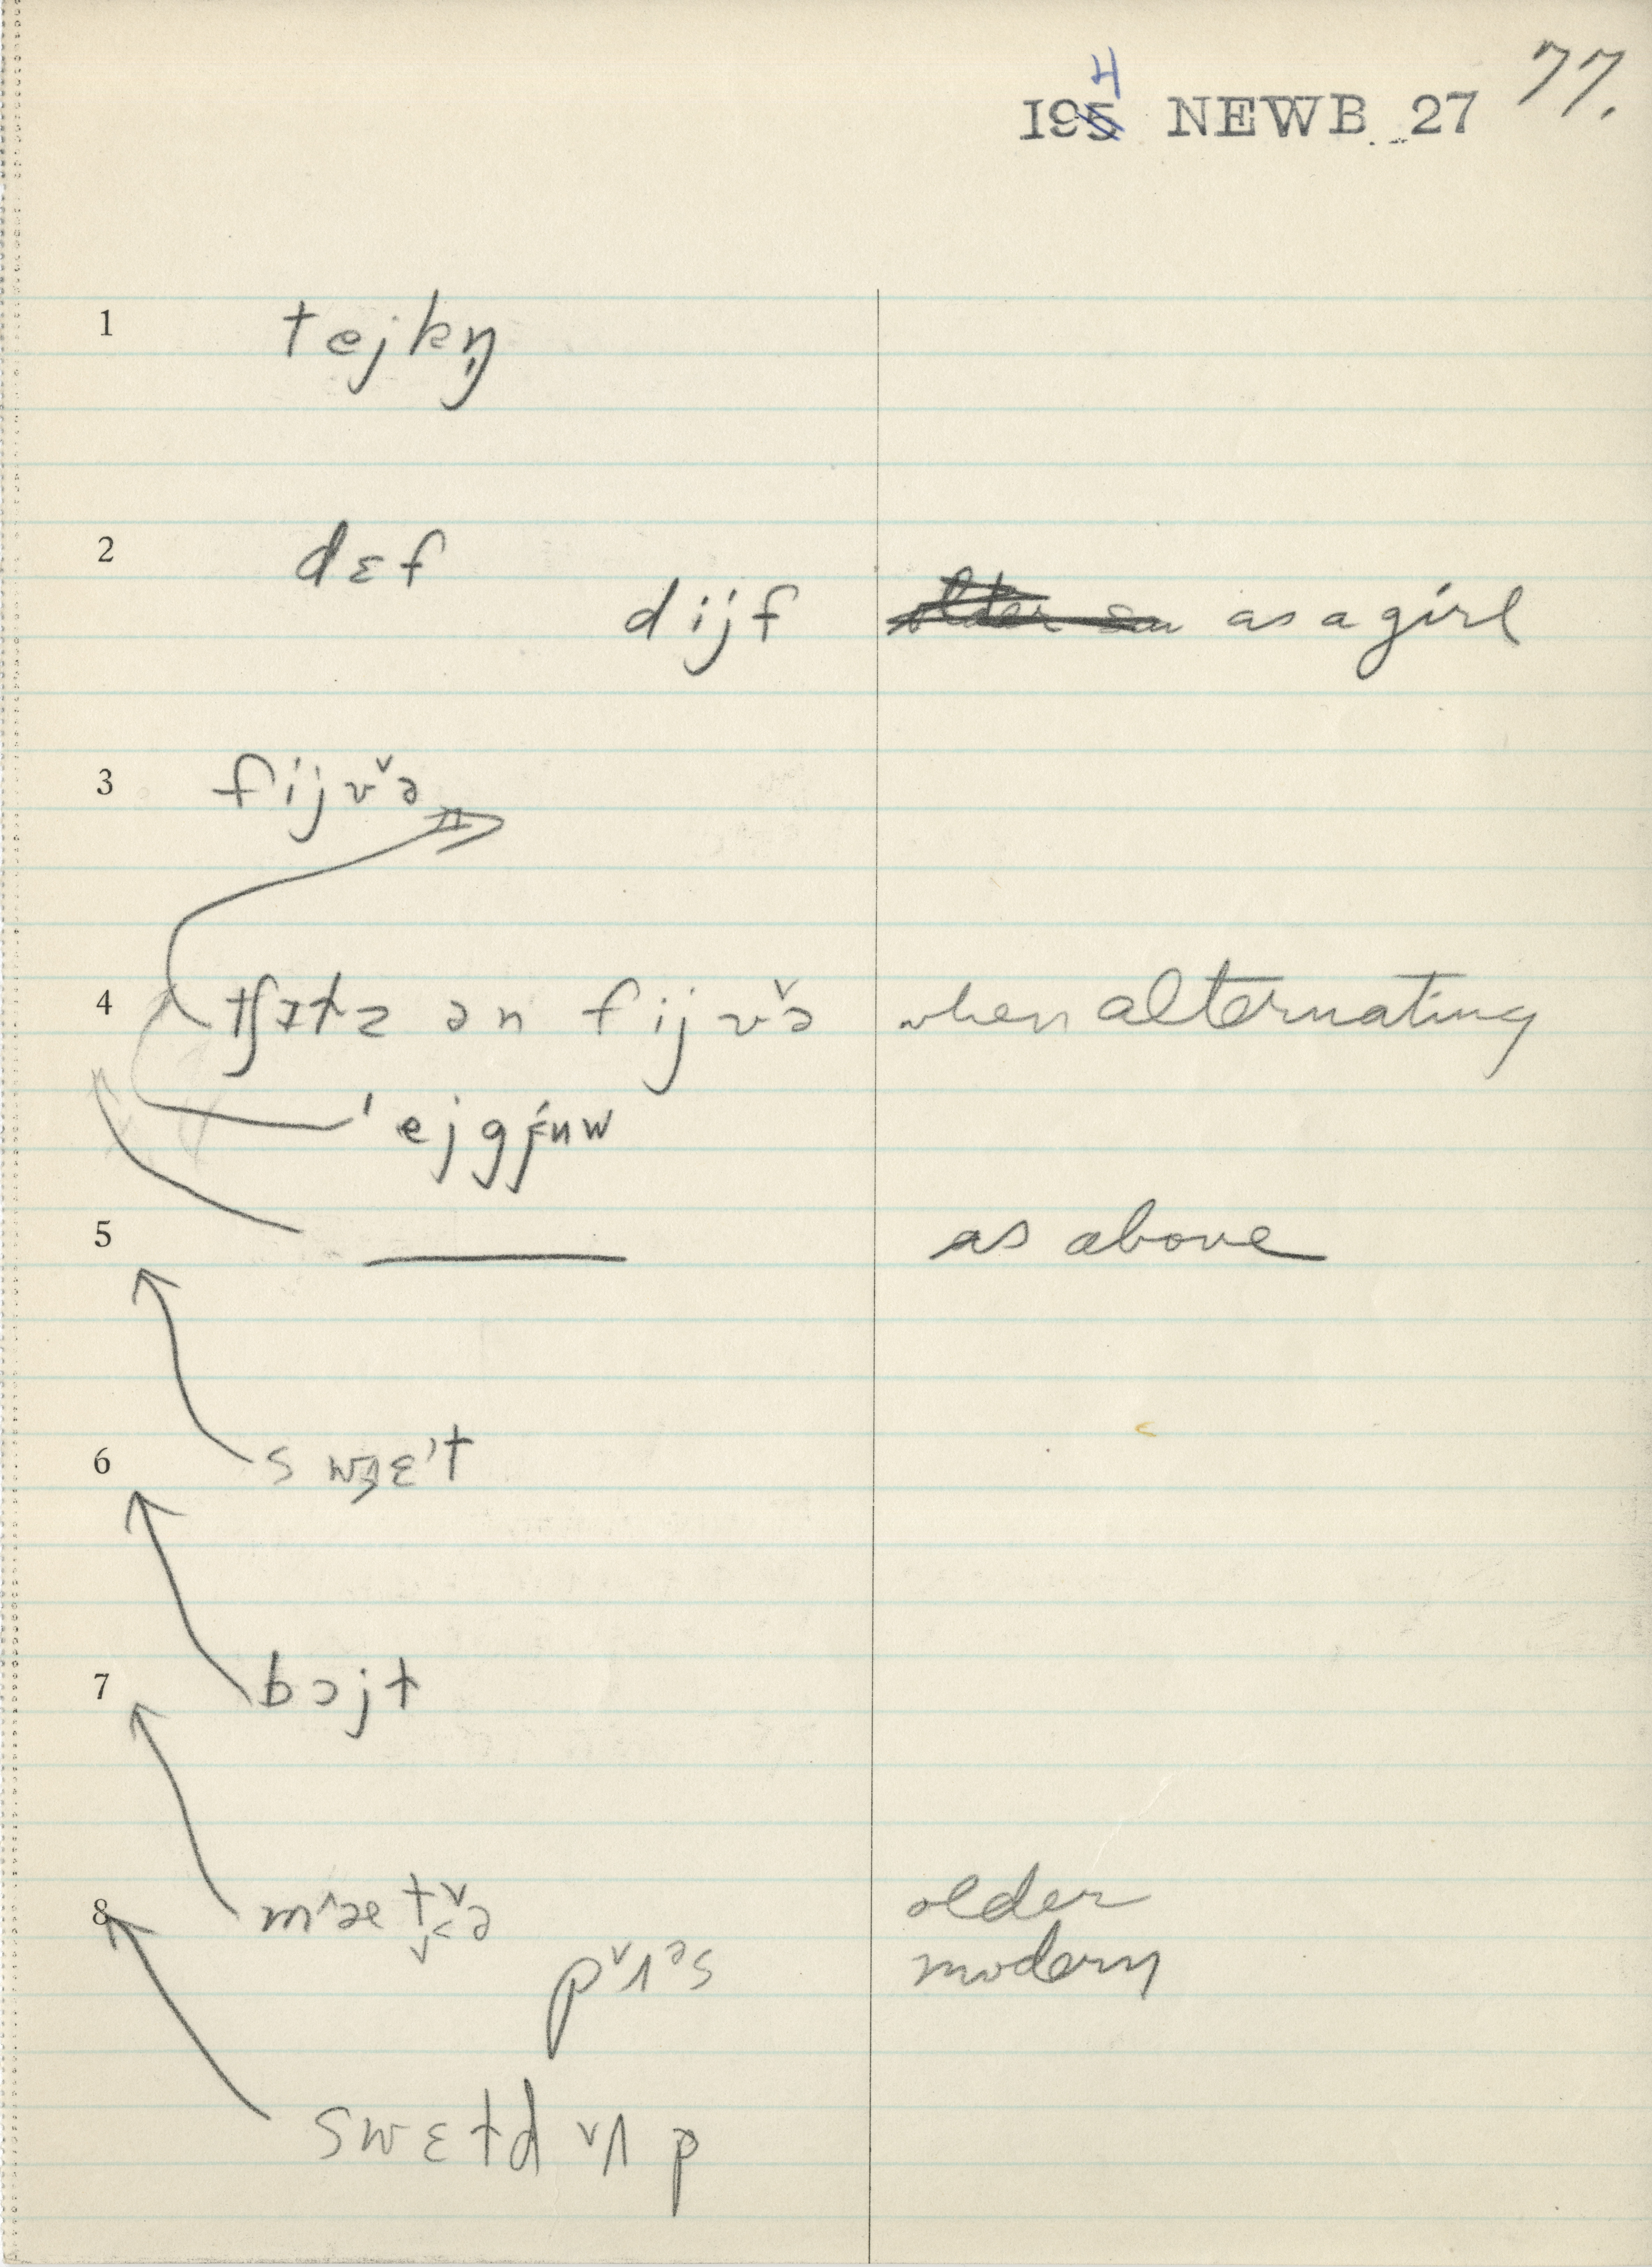 4
195 NEWB. 27 77.
1 tejkŋ̩
2 dɛf
dijf as a girl
3 fijvˇə
4 tʃɪtz ən fijvˇə when alternating
ˈejgjʉw
5 as above
6 swɛ't
7 bɔjt
8 older
pˇʌᵊs modern
swɛtdˇʌp